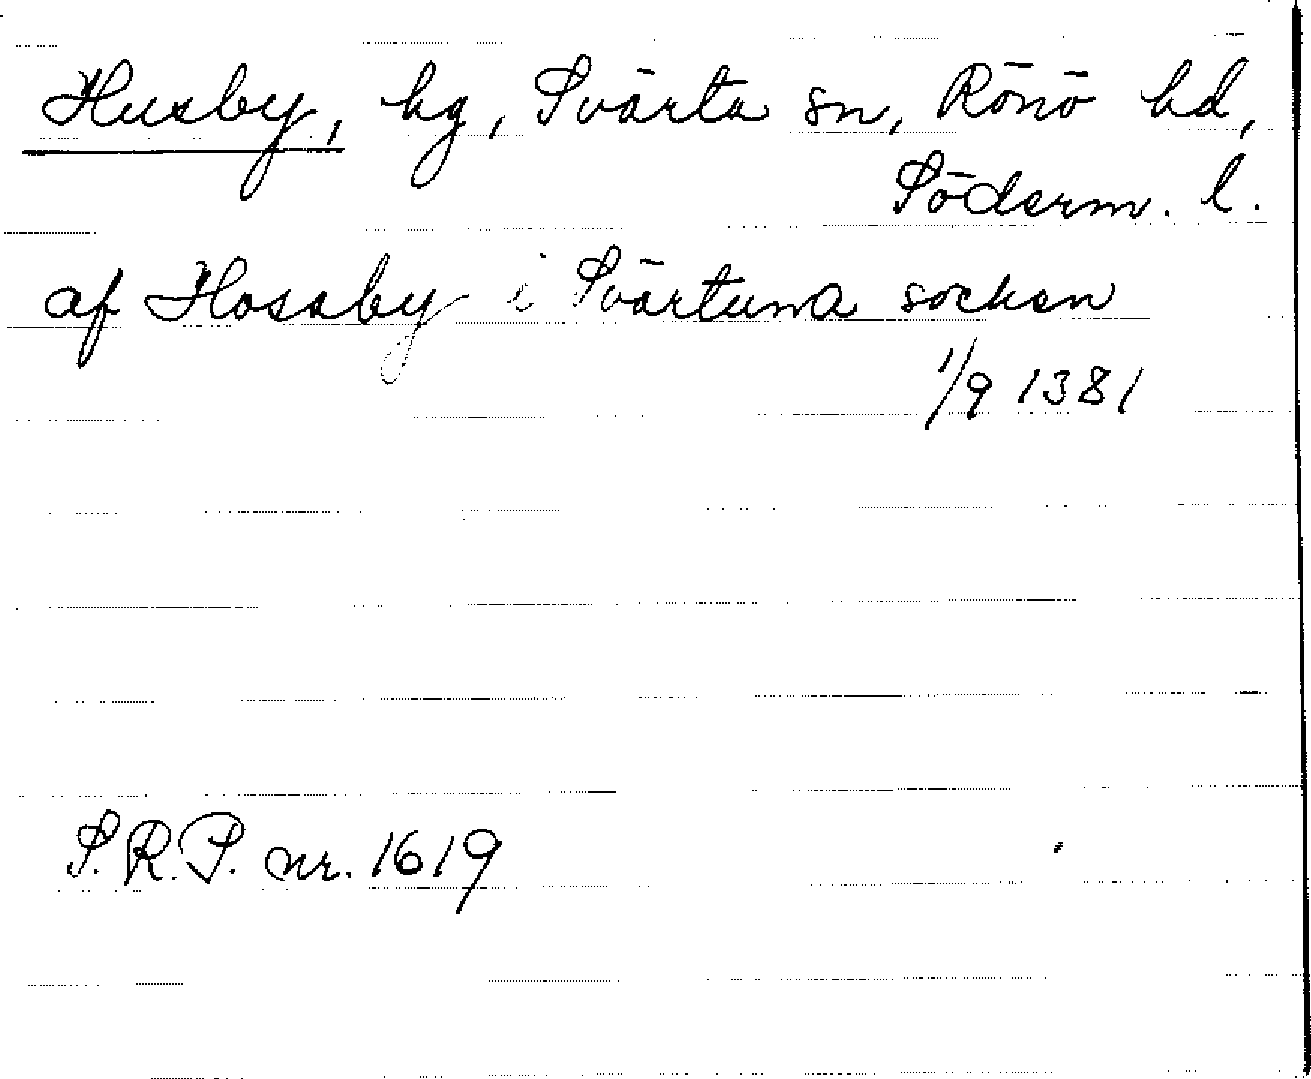 Husby, hg, Svärta sn, Rönö hd,
Söderm. l.
af Hossby i Svärtuna socken
1/9 1381
S.R.P. nr. 1619